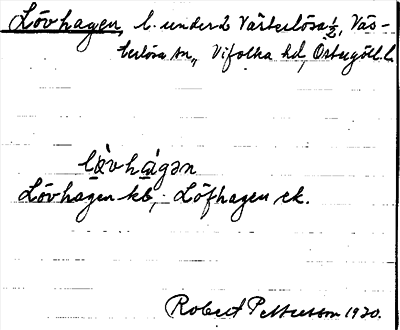 Lövhagen, l. under 2 Västerlösa ½, Väs-
terlösa sn, Vifolka hd, Östergötl. l.
lö̀vhágən
Lövhagen kb, Löfhagen ek.
Robert Pettersson 1930.